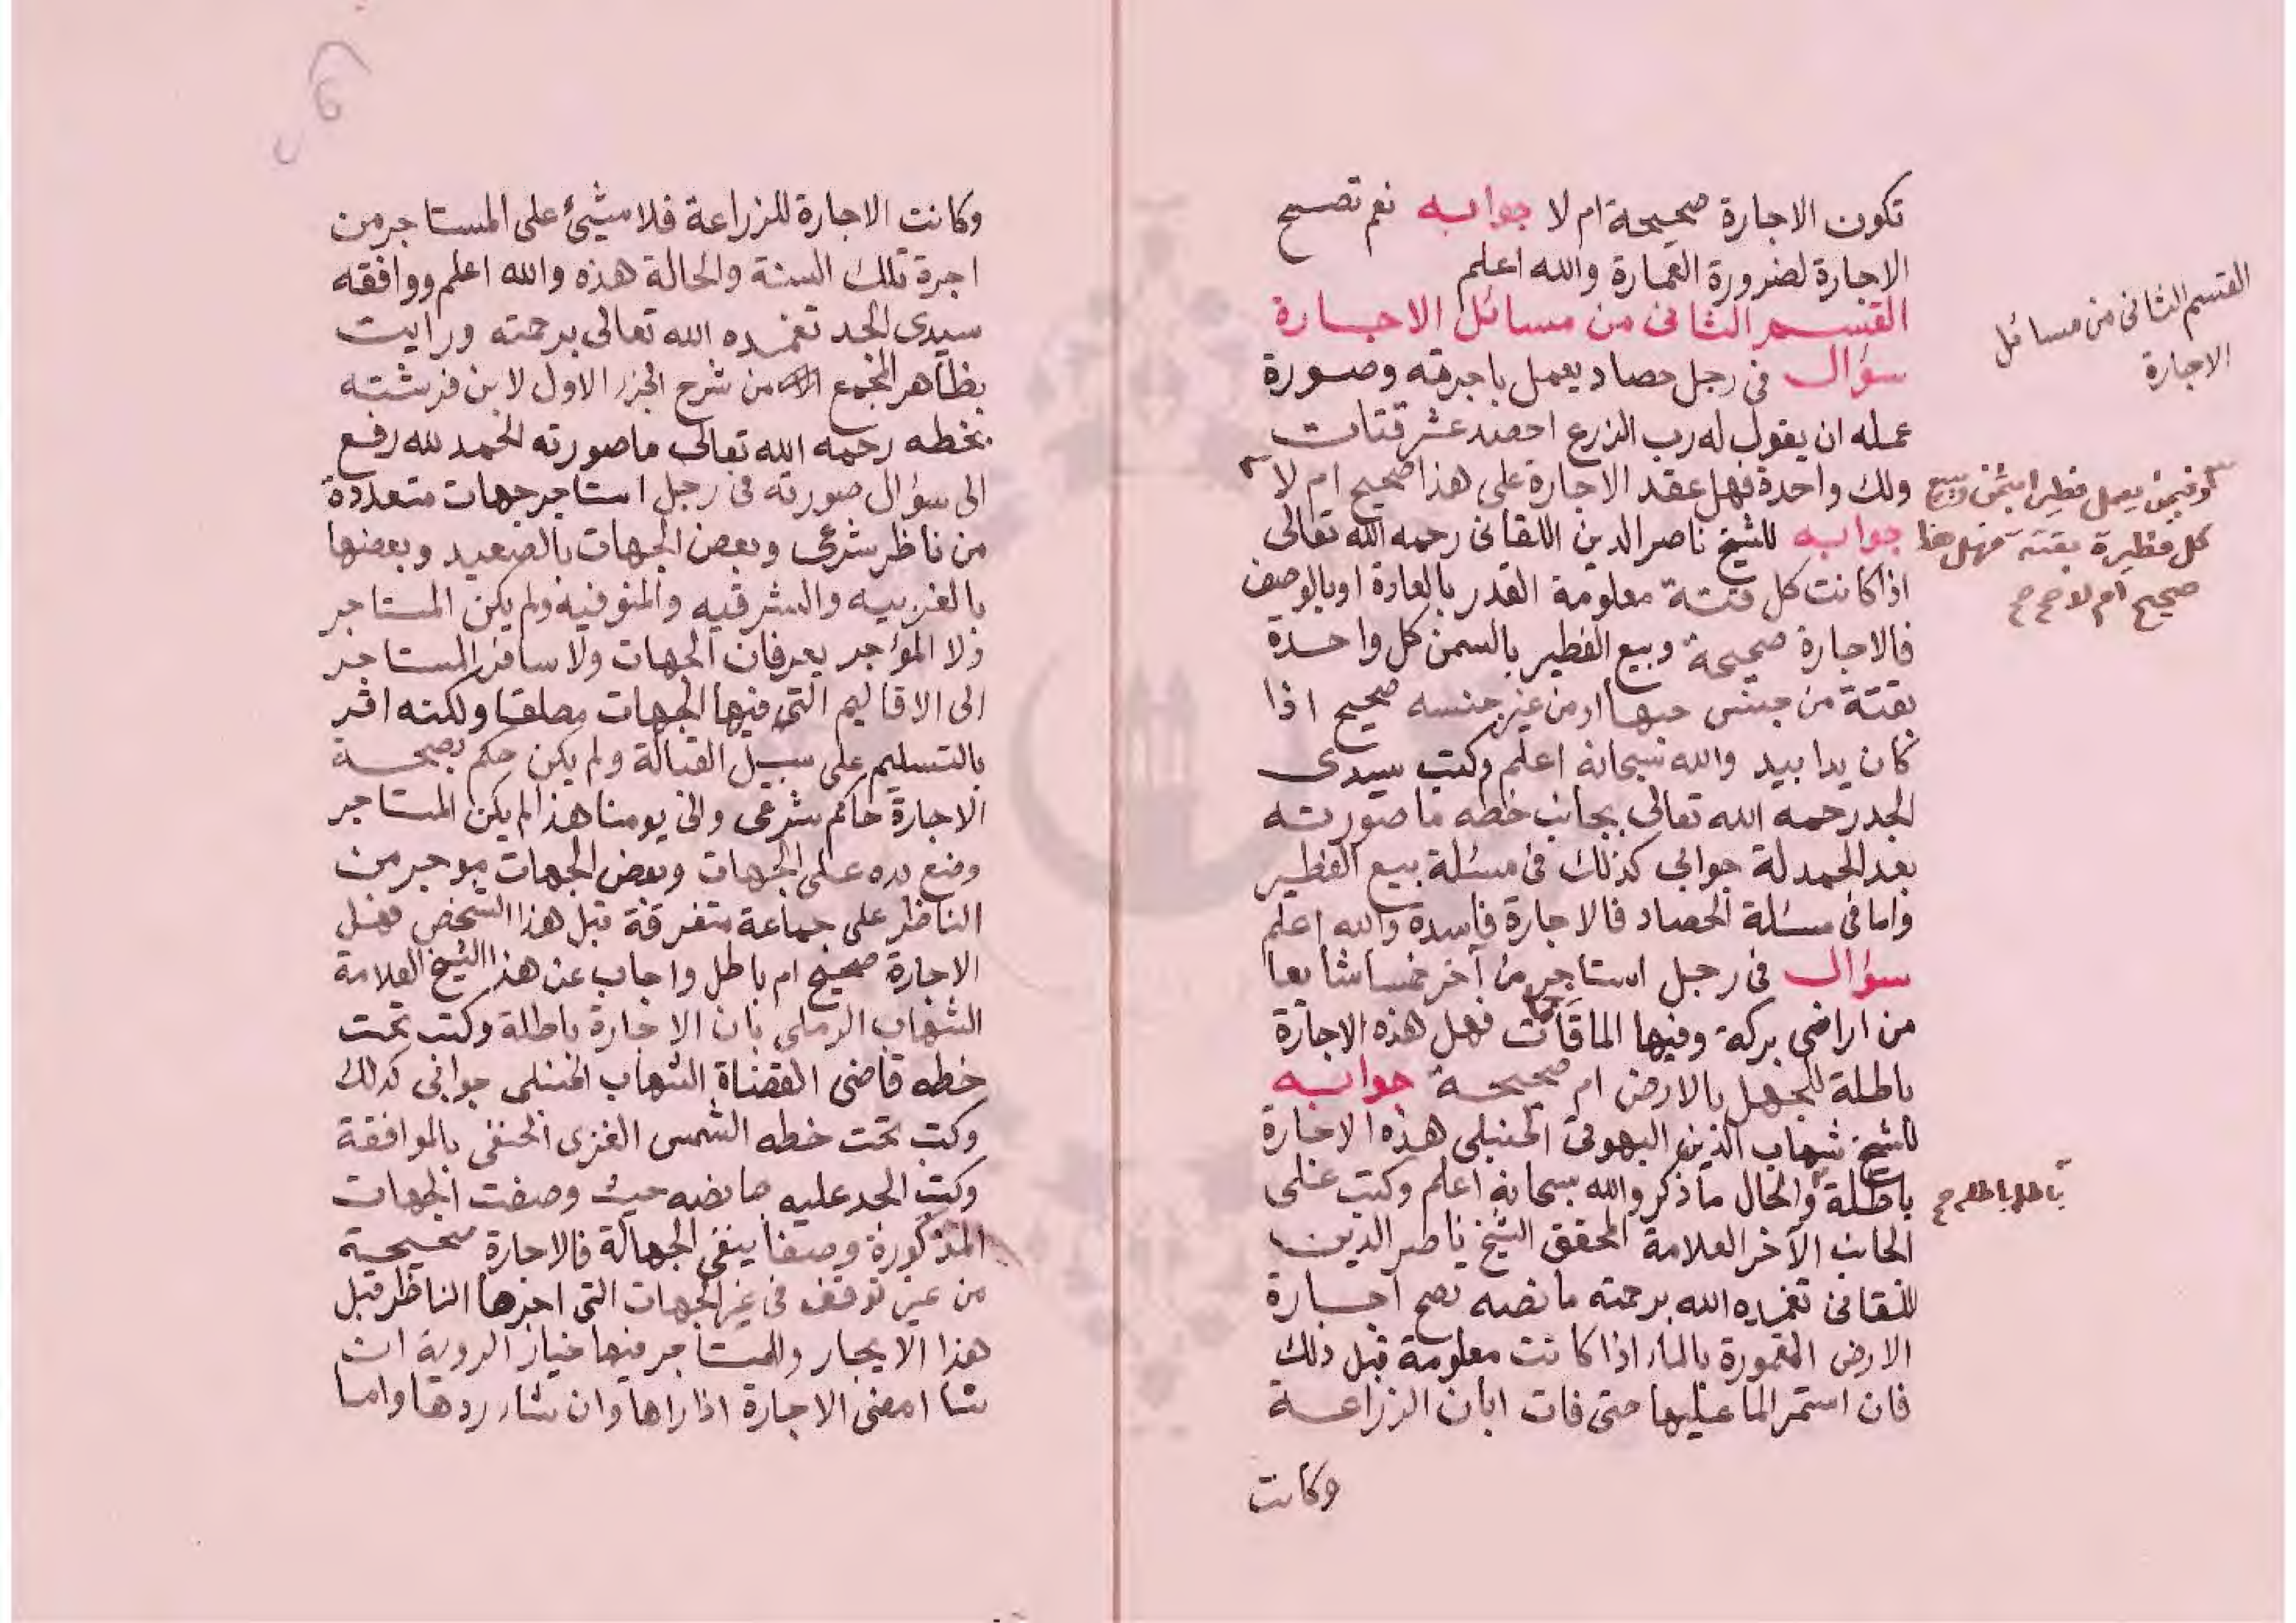 تكون الاجارة صحيحة ام لا جوابه نعم تصح
الاجارة لضرورة العمارة والله اعلم
القسم الثانى من مسائل الاجارة
سؤال فى رجل حصاد يعمل باجرته وصورة
عمله ان يقول له رب الزرع احصد عشر قتات
ولك واحدة فهل عقد الاجارة على هذا صحيح ام لا
جوابه للشيخ ناصر الدين اللقانى رحمه الله تعالى
اذا كانت كل قتة معلومة القدر بالعادة او بالوصف
فالاجارة صحيحة وبيع الفطير بالسمن كل واحدة
بقتة من جنس حبها او من غير جنسه صحيح اذا
كان يدا بيد والله سبحانه اعلم وكتب سيدى
الجد رحمه الله تعالى بجانب خطه ما صورته
بعد الحمدلة جوابى كذلك فى مسئلة بيع الفطير
واما فى مسئلة الحصاد فالاجارة فاسدة والله اعلم
سؤال فى رجل استاجر من آخر خمسا شايعا
من اراضى بركة وفيها الما فهل هذه الاجارة
باطلة للجهل بالارض ام صحيحة جوابه
للشيخ شهاب الدين البهوتى الحنبلى هذه الاجارة
باطلة والحال ما ذكر والله سبحانه اعلم وكتب على
الجانب الآخر العلامة المحقق الشيخ ناصر الدين
اللقانى تغمده الله برحمته ما نصه تصح اجارة
الارض المغمورة بالماء اذا كانت معلومة قبل ذلك
فان استمر الما عليها حتى فات ابان الزراعة
وكانت
القسم الثانى من مسائل
الاجارة
وفيمن يعمل فطيرا بثمن وبيع
كل فطيرة بقتة فهل هذا
صحيح ام لا صح صح
وكانت الاجارة للزراعة فلا شيئ على المستاجر من
اجرة تلك السنة والحالة هذه والله اعلم ووافقه
سيدى الجد تغمده الله تعالى برحمته ورايت
بظاهر المجمع من شرح الجزء الاول لابن فرشته
بخطه رحمه الله تعالى ما صورته الحمد لله رفع
الى سؤال صورته فى رجل استاجر جهات متعددة
من ناظر شرعى وبعض الجهات بالصعيد وبعضها
بالغربيه والشرقيه والمنوفيه ولم يكن المستاجر
ولا المؤاجر يعرفان الجهات ولا سافر المستاجر
الى الاقاليم التى فيها الجهات مطلقا ولكنه اقر
بالتسليم على سبيل القبالة ولم يكن حكم بصحة
الاجارة حاكم شرعى والى يومنا هذا لم يكن المستاجر
وضع يده على الجهات وبعض الجهات موجر من
الناظر على جماعة متفرقة قبل هذا الشخص فهل
الاجارة صحيح ام باطل واجاب عن هذا الشيخ العلامة
الشهاب الرملى بان الاجارة باطلة وكتب تحت
خطه قاضى القضاة الشهاب الحنبلى جوابى كذلك
وكتب تحت خطه الشمس الغزى الحنفى بالموافقة
وكتب الجد عليه ما نصه حيث وصفت الجهات
المذكورة وصفا ينفى الجهالة فالاجارة صحيحة
من غير توقف فى غير الجهات التى اجرها الناظر قبل
هذا الايجار وللمستاجر فيها خيار الروية ان
شا امضى الاجارة اذا راها وان شاء ردها واما